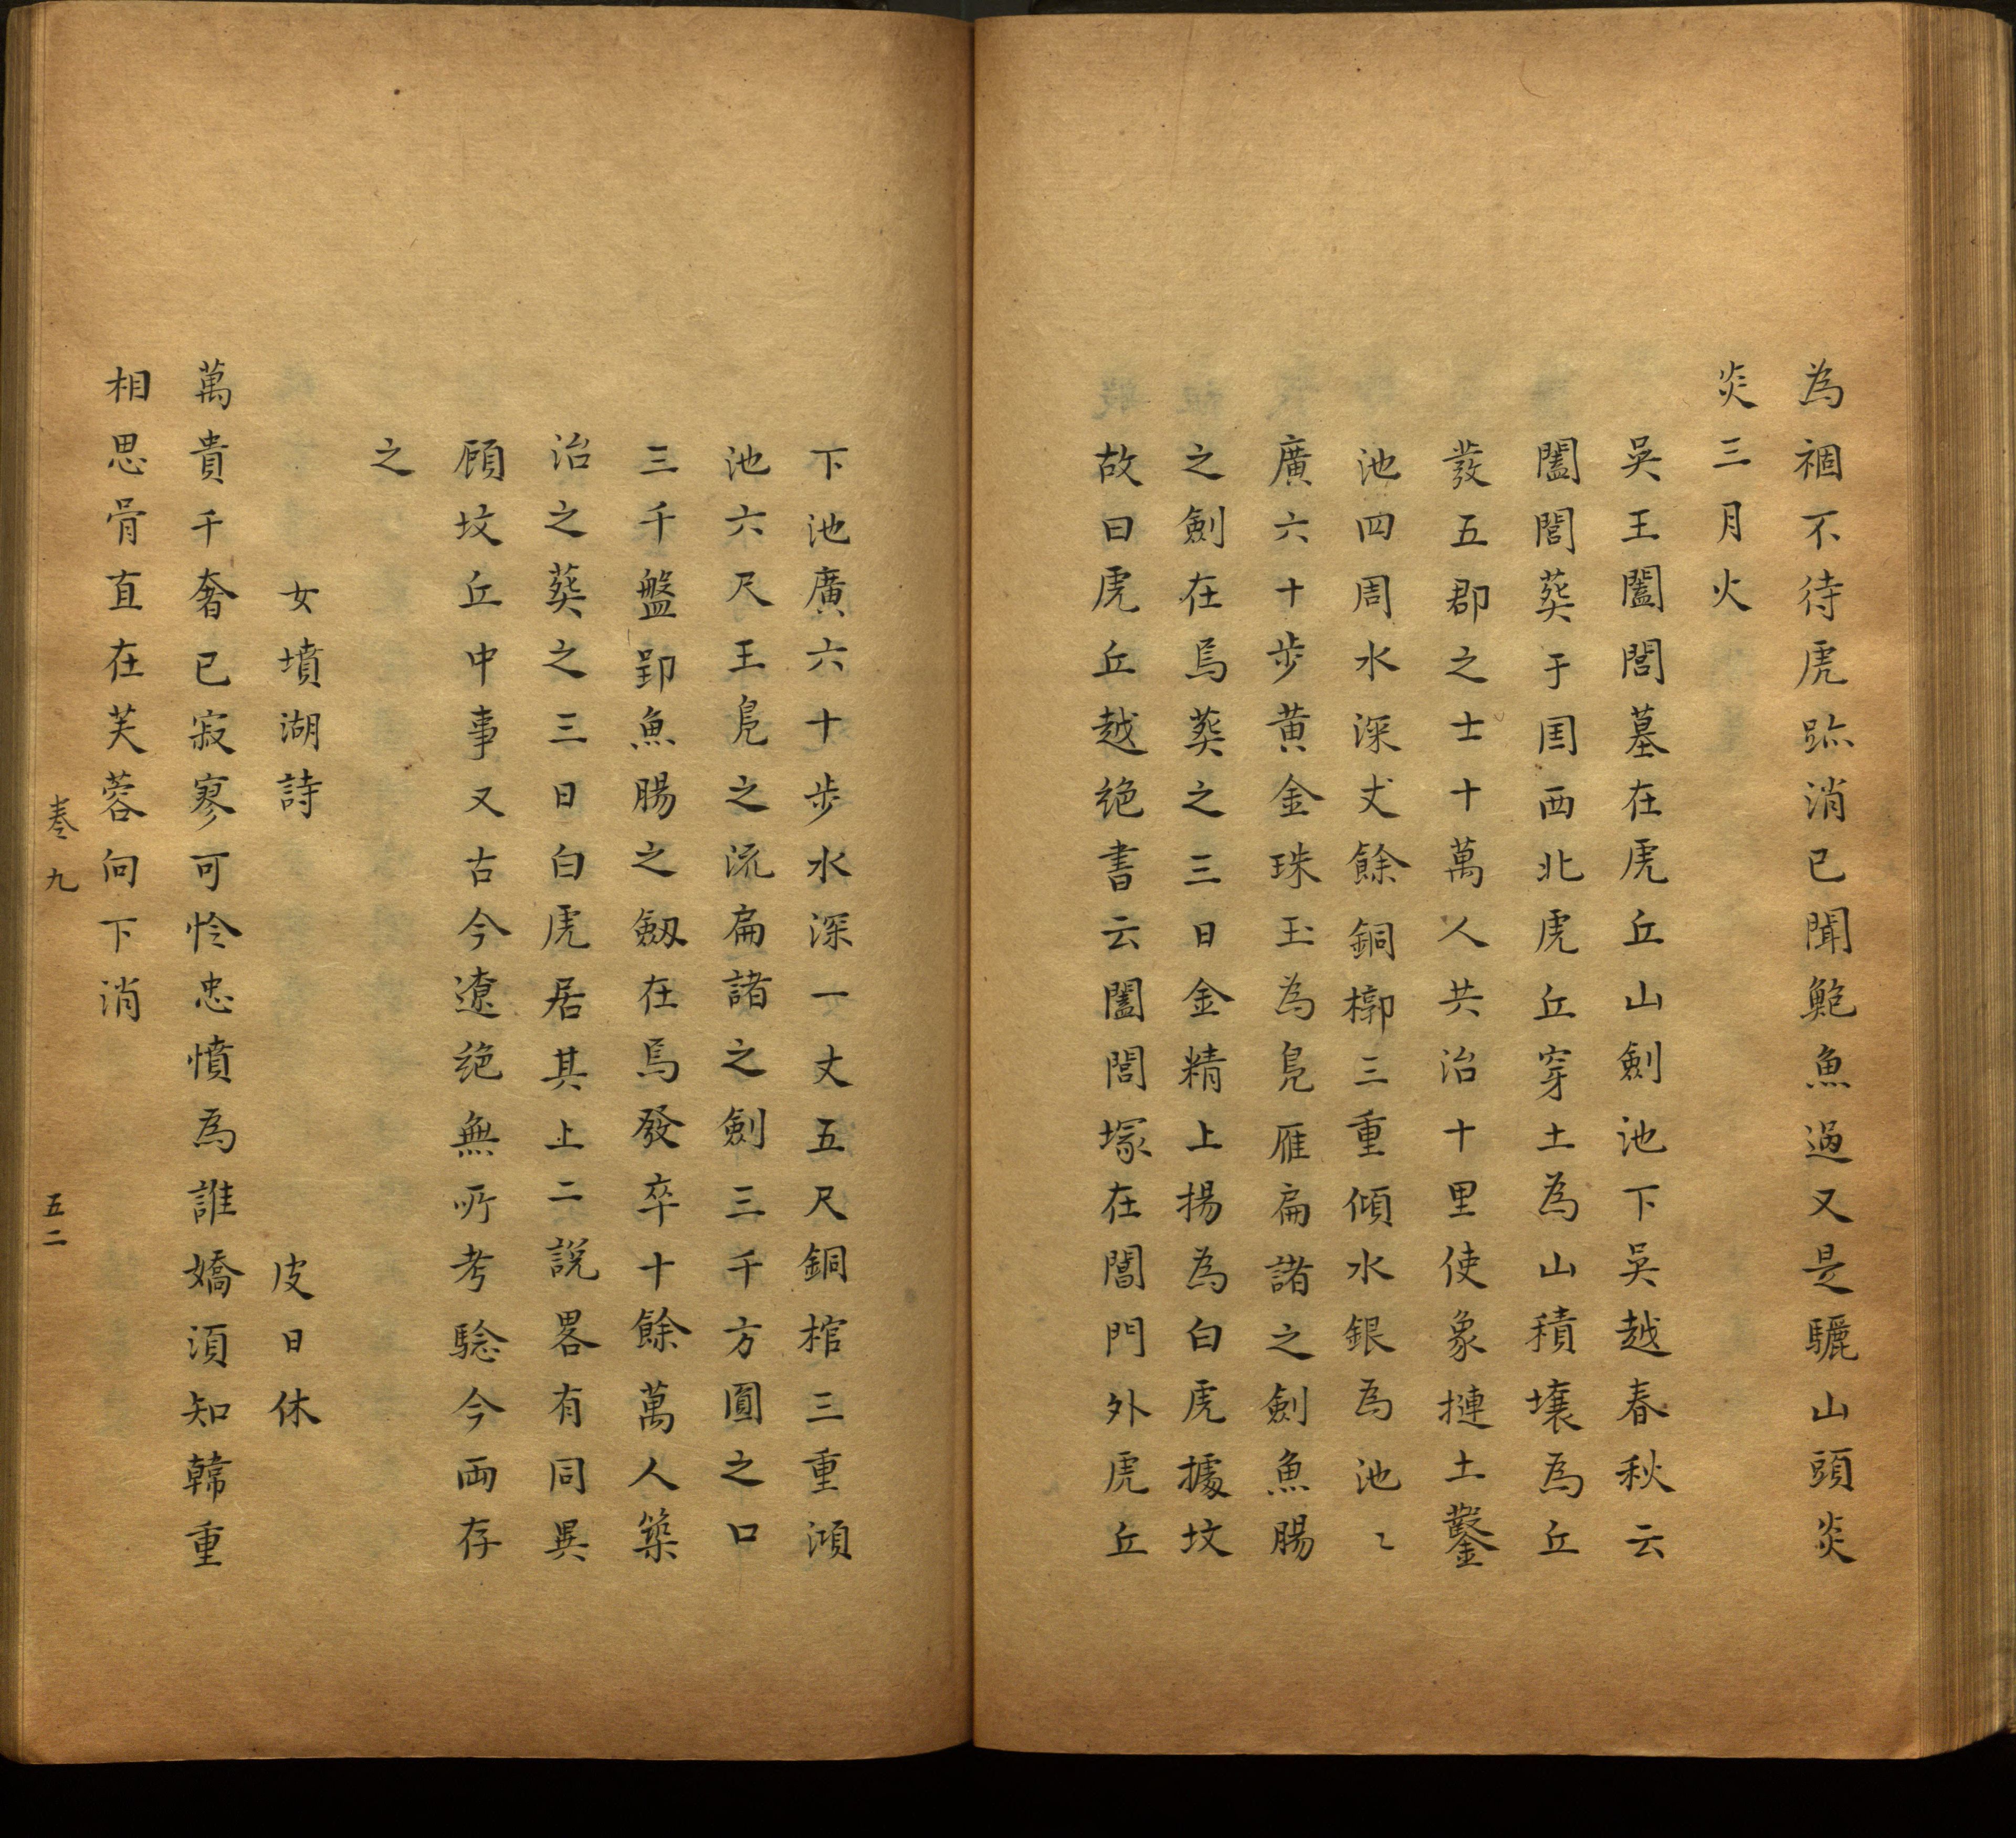 為祻不待虎跡消已聞鮑魚過又是驪山頭炎
炎三月火
吳王闔閭墓在虎丘山劍池下吳越春秋云
闔閭葬于国西北虎丘穿土為山積壤為丘
發五郡之士十萬人共治十里使象摙土鑿
池四周水深丈餘銅槨三重傾水銀為池〻
廣六十步黄金珠玉為鳧雁扁諸之劍魚腸
之劍在焉葬之三日金精上揚為白虎據坟
故曰虎丘越絕書云闔閭塚在閶門外虎丘
下池廣六十步水深一丈五尺銅棺三重澒
池六尺王鳧之流扁諸之劍三千方圓之口
三千盤郢魚腸之劔在焉發卒十餘萬人築
治之葬之三日白虎居其上二說畧有同異
顧坟丘中事又古今遼絕無所考驗今両存
之
女墳湖詩 皮日休
萬貴千奢已寂寥可怜忠憤為誰嬌須知韓重
相思骨直在芙蓉向下消
卷九 五二